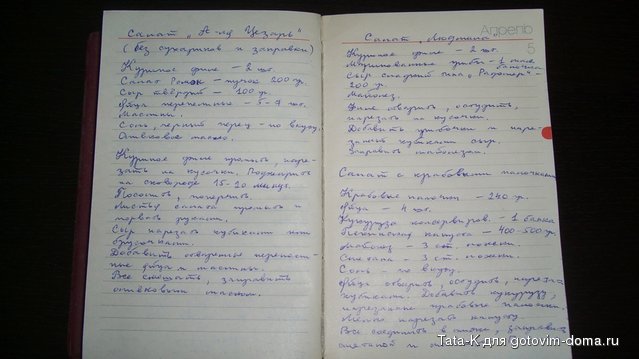 Салат "А-ля Цезарь"
(без сухариков и заправки)
Куриное филе - 2 шт.
Салат Ромэн - пучок 200 гр.
Сыр твёрдый - 100 гр.
Яйца перепелиные - 5-7 шт.
Маслины.
Соль, черный перец - по вкусу.
Оливковое масло.
Куриное филе промыть, наре-
зать на кусочки. Поджарить
на сковороде 15-20 минут.
Посолить, поперчить.
Листья салата промыть и
порвать руками.
Сыр нарезать кубиками или
брусочками.
Добавить отваренные перепели-
ные яйца и маслины.
Все смешать, заправить
оливковым маслом.
Апрель
5
Салат "Людмила"
Куриное филе - 2 шт.
Маринованные грибы - 1 баночка
Сыр сладкий типа "Радомер" -
200 гр.
Майонез.
Филе отварить, остудить,
нарезать на кусочки.
Добавить грибочки и наре-
занный кубиками сыр.
Заправить майонезом.
Салат с крабовыми палочками
Крабовые палочки - 240 гр.
Яйца - 4 шт.
Кукуруза консервиров. - 1 банка
Пекинская капуста - 400-500 гр.
Майонез - 3 ст. ложки.
Сметана - 3 ст. ложки.
Соль - по вкусу.
Яйца отварить, остудить, нареза
кубиками. Добавить кукурузу,
нарезанные крабовые палочки.
Мелко нарезать капусту.
Все соединить заправив
сметаной и
Tata-K для gotovim-doma.ru